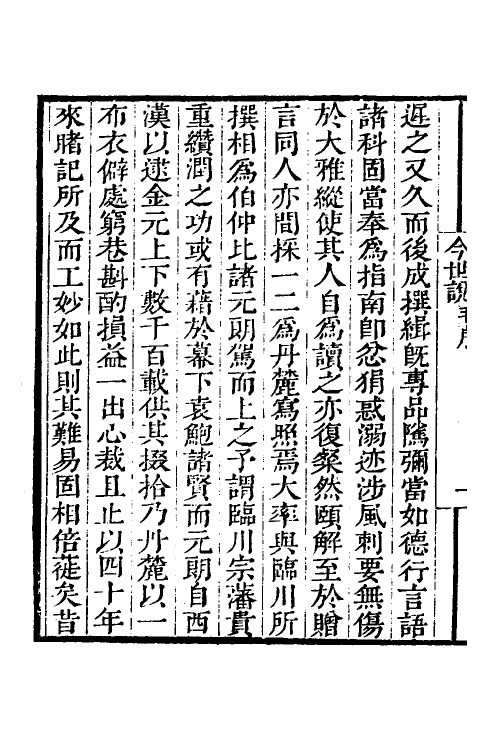 今世說 毛序 一
遲之又久而後成撰緝旣專品隲彌當如德行言語
諸科固當奉爲指南卽忿狷惑溺迹涉風刺要無傷
於大雅縱使其人自爲讀之亦復粲然頤解至於贈
言同人亦間採一二爲丹麓寫照焉大率與臨川所
撰相爲伯仲比諸元朗駕而上之予謂臨川宗藩貴
重纘潤之功或有藉於幕下袁鮑諸賢而元朗自西
漢以逮金元上下數千百載供其掇拾乃丹麓以一
布衣僻處窮巷斟酌損益一出心裁且止以四十年
來睹記所及而工妙如此則其難易固相倍蓰矣昔